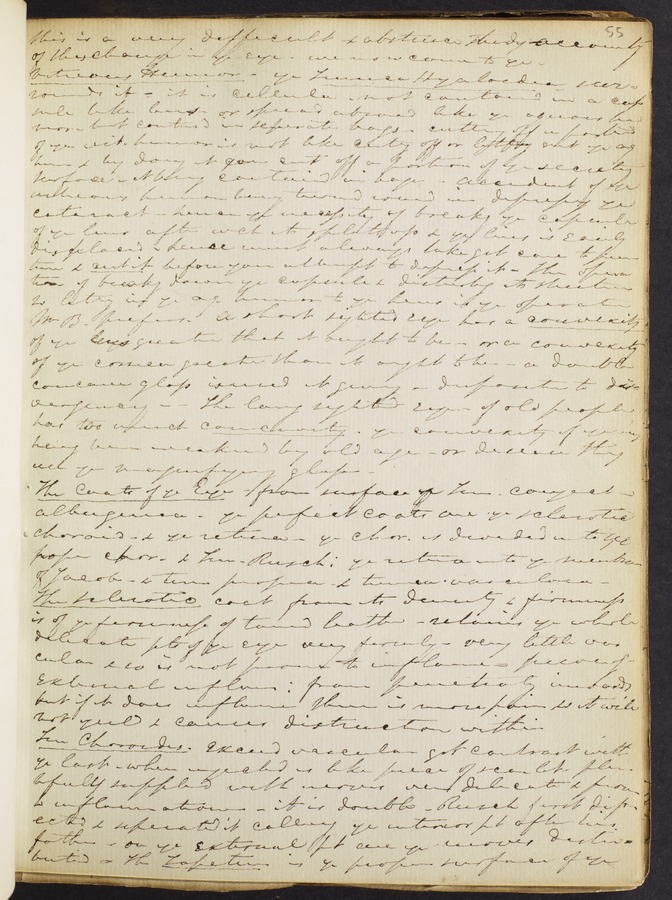 55
this is a very difficult & abstruse study account of
of this change in ye eye. we now come to ye
Vitreous Humor - ye Tunica Hyaloidea sur-
rounds it - it is cellular. not contained in a cap
sule like lens or spread abroad like ye aqueous hu
mor but contained in seperate bags. cutting off a portion
of ye vit. humor is not like cutting off or letting out ye aq
hum & by doing it you cut off a portion of ye secreting
surface - it being contained in bags - accident of ye
vitreous humor being turned round in depressing ye
cataract - hence ye necessity of breaking ye capsule
of ye lens after wch it splits & ye lens is easily
displaced & hence must always take gt care to open
this & cut it before you attempt to depress it - The opera
tion of breaking down ye capsule & disturbing its structure
so letting in ye aq humor to ye lens is ye operation
Mr B. prefers. A short sighted eye has a convexity
of ye lens greater than it ought to be - or a convexity
of ye cornea greater than it ought to be - a double
concave glass is used it giving a disposition to di-
vergency - The long sighted eye of old people
has too much concavity. ye convexity of ye
being been weakened by old age - or disease they
use ye magnifying glass -
The Coats of ye Eye, from surface ye Tun. conject -
albuginea - ye perfect coats are ye sclerotic
choroid - & ye retina - ye chor. is divided into ye
proper chor. & Tun. Ruschi: ye retina into ye membran
of Jacob - & tun propria & tunica vasculosa -
The sclerotic coat from its density & firmness
is of ye firmness of tanned leather - retains ye whole
delicate pts of ye eye very firmly - very little vas
cular & so is not prone to inflame - preserving
external inflam: from penetrating inwards
but if it does inflame there is more pain as it will
not yield & causes distruction within
Tun Choroides. Exceed vascular gt contrast with
ye last - when injected is like piece of scarlet. plen-
tifully supplied with nerves very delicate & prone
to inflammation - it is double - Rusch first diss-
ected & seperated it calling ye interior pt after his
father - on ye external pt are ye nerves distri-
buted - The Tapetum is ye proper surface of ye